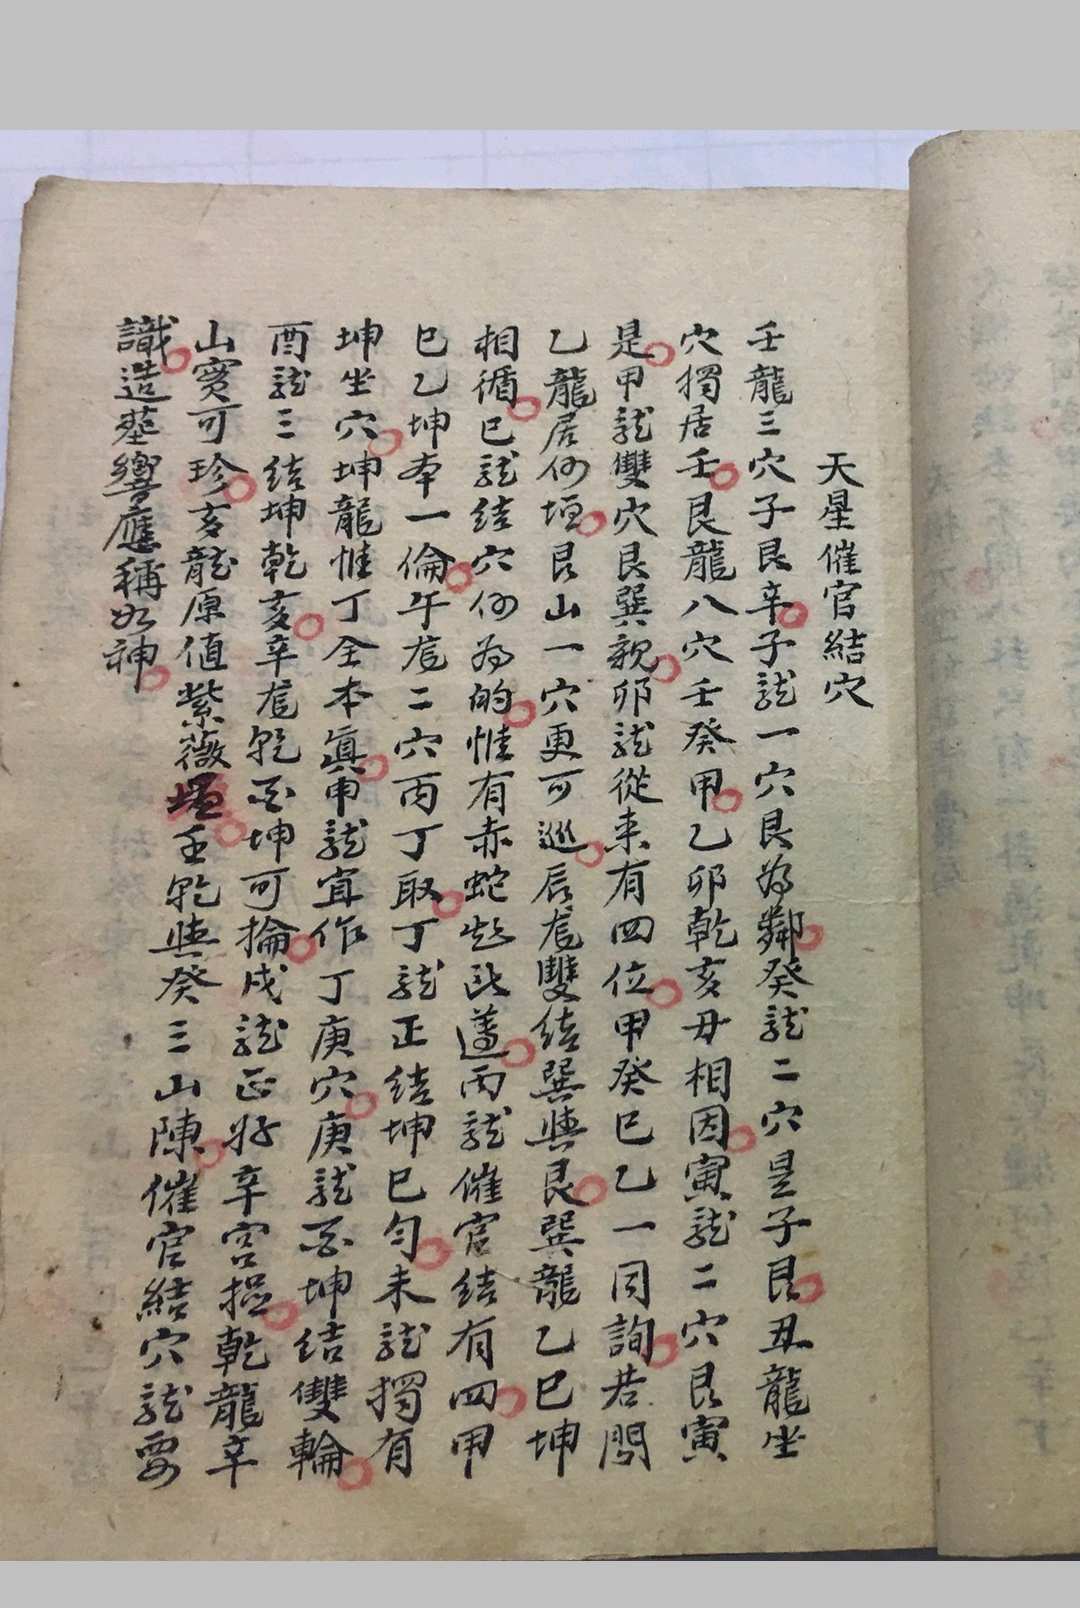 天星催官結穴
壬龍三穴子艮辛子龍一穴艮為鄰癸龍二穴是子艮丑龍坐
穴獨居壬艮龍八穴壬癸甲乙卯乾亥丑相因寅龍二穴艮寅
是甲龍雙穴艮巽親卯龍從來有四位甲癸巳乙一同詢若問
乙龍居何垣艮山一穴更可巡辰龍雙結巽與艮巽龍乙巳坤
相循巳龍結穴何為的惟有赤蛇起此邅丙龍催官結有四甲
巳乙坤本一倫午龍二穴丙丁取丁龍正結坤巳勻未龍獨有
坤坐穴坤龍惟丁全本真申龍宜作丁庚穴庚龍酉坤結雙輪
酉龍三結坤乾亥辛龍乾酉坤可掄戌龍正好辛宮挖乾龍辛
山實可珍亥龍原值紫薇垣壬乾與癸三山陳催官結穴龍要
識造塟響應稱如神